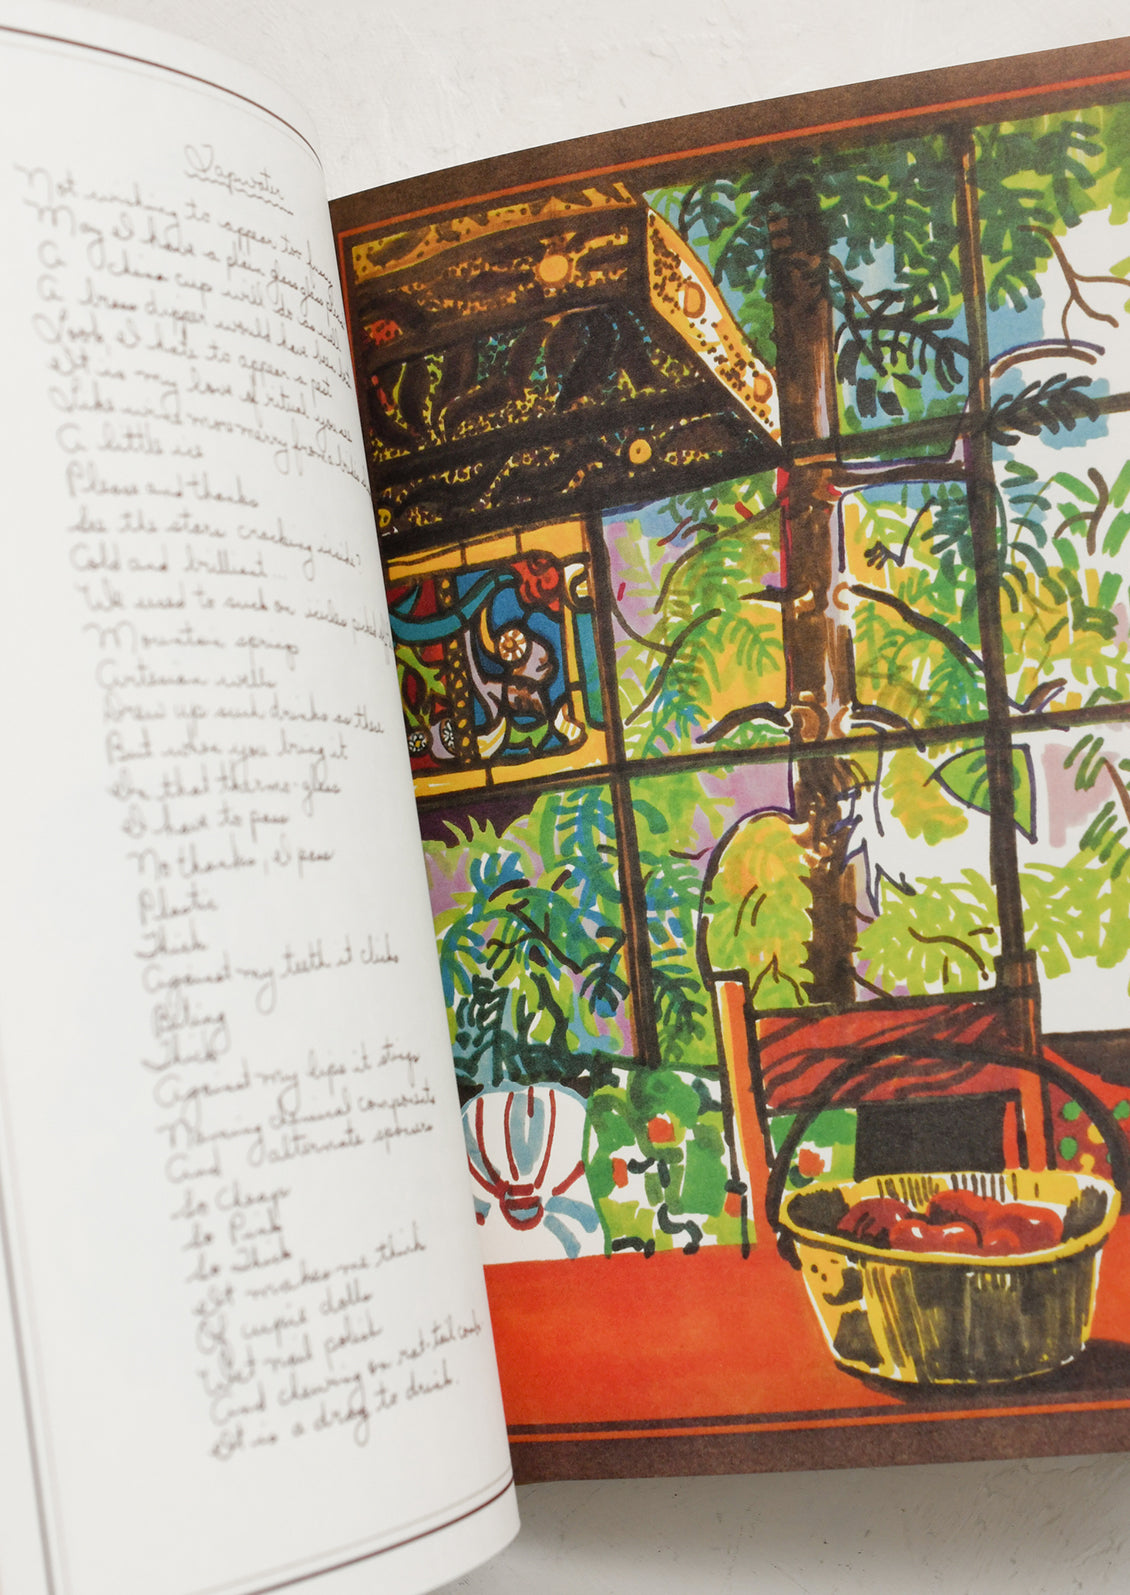 Tapwater
Not wishing to appear too fussy
May I have a plain glass glass
A china cup will do as well
A brass dipper would have been
Look I hate to appear a pest
It is my love of ritual you see
Like wine more merry from a
A little ice
Please and thanks
See the stars cracking inside?
Cold and brilliant...
We used to suck on icicles picked
Mountain springs
Artesian wells
Drew up such drinks as these
But when you bring it
In that thermo-glass
I have to pass
No thanks, I pass
Plastic
Thick
Against my teeth it clicks
Biting
Thick
Against my lips it stings
Naming chemical components
And alternate spouses
So Cheap
So Pink
So Thick
It makes me think
Of cupie dolls
Wet nail polish
And chewing on rat-tail combs
It is a drag to drink.